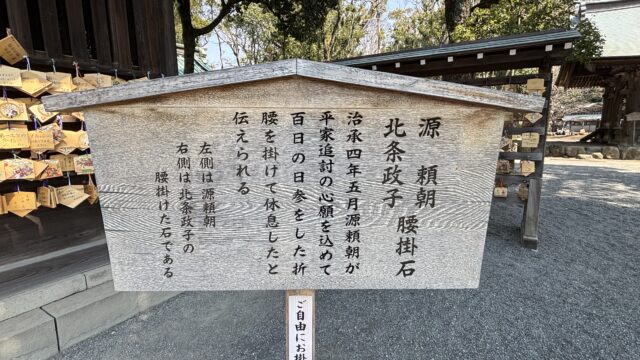 源 頼朝
北条政子 腰掛石
治承四年五月源頼朝が
平家追討の心願を込めて
百日の日参をした折
腰を掛けて休息したと
伝えられる
左側は源頼朝
右側は北条政子の
腰掛けた石である
ご自由にお掛